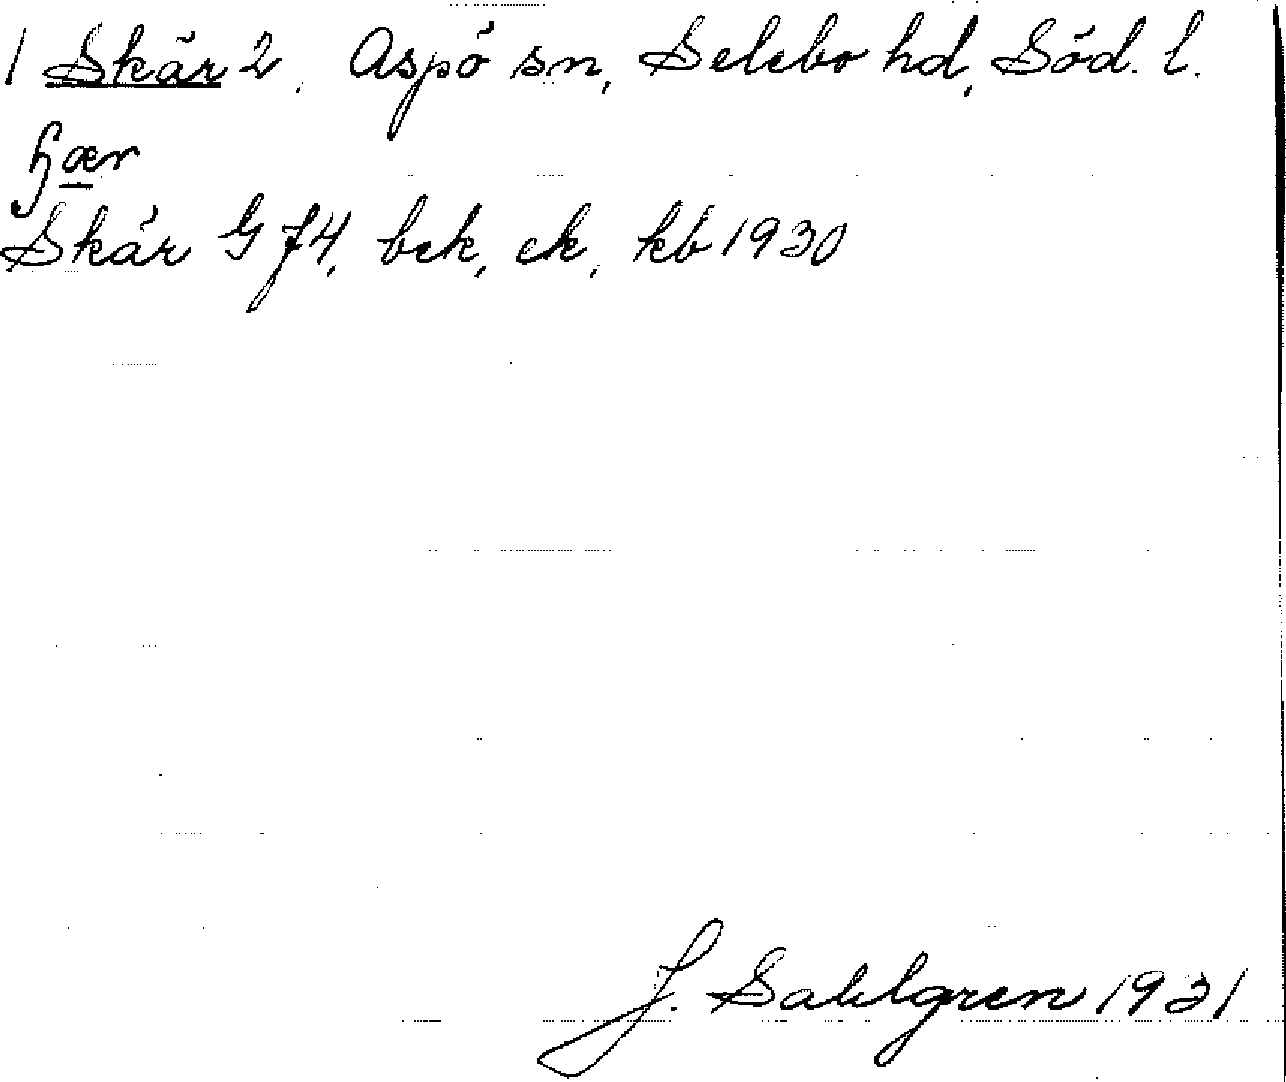 1 Skär 2, Aspö sn, Selebo hd, Söd. l.
ɧær
Skär G J4, bek, ek, kb 1930
J. Sahlgren 1931